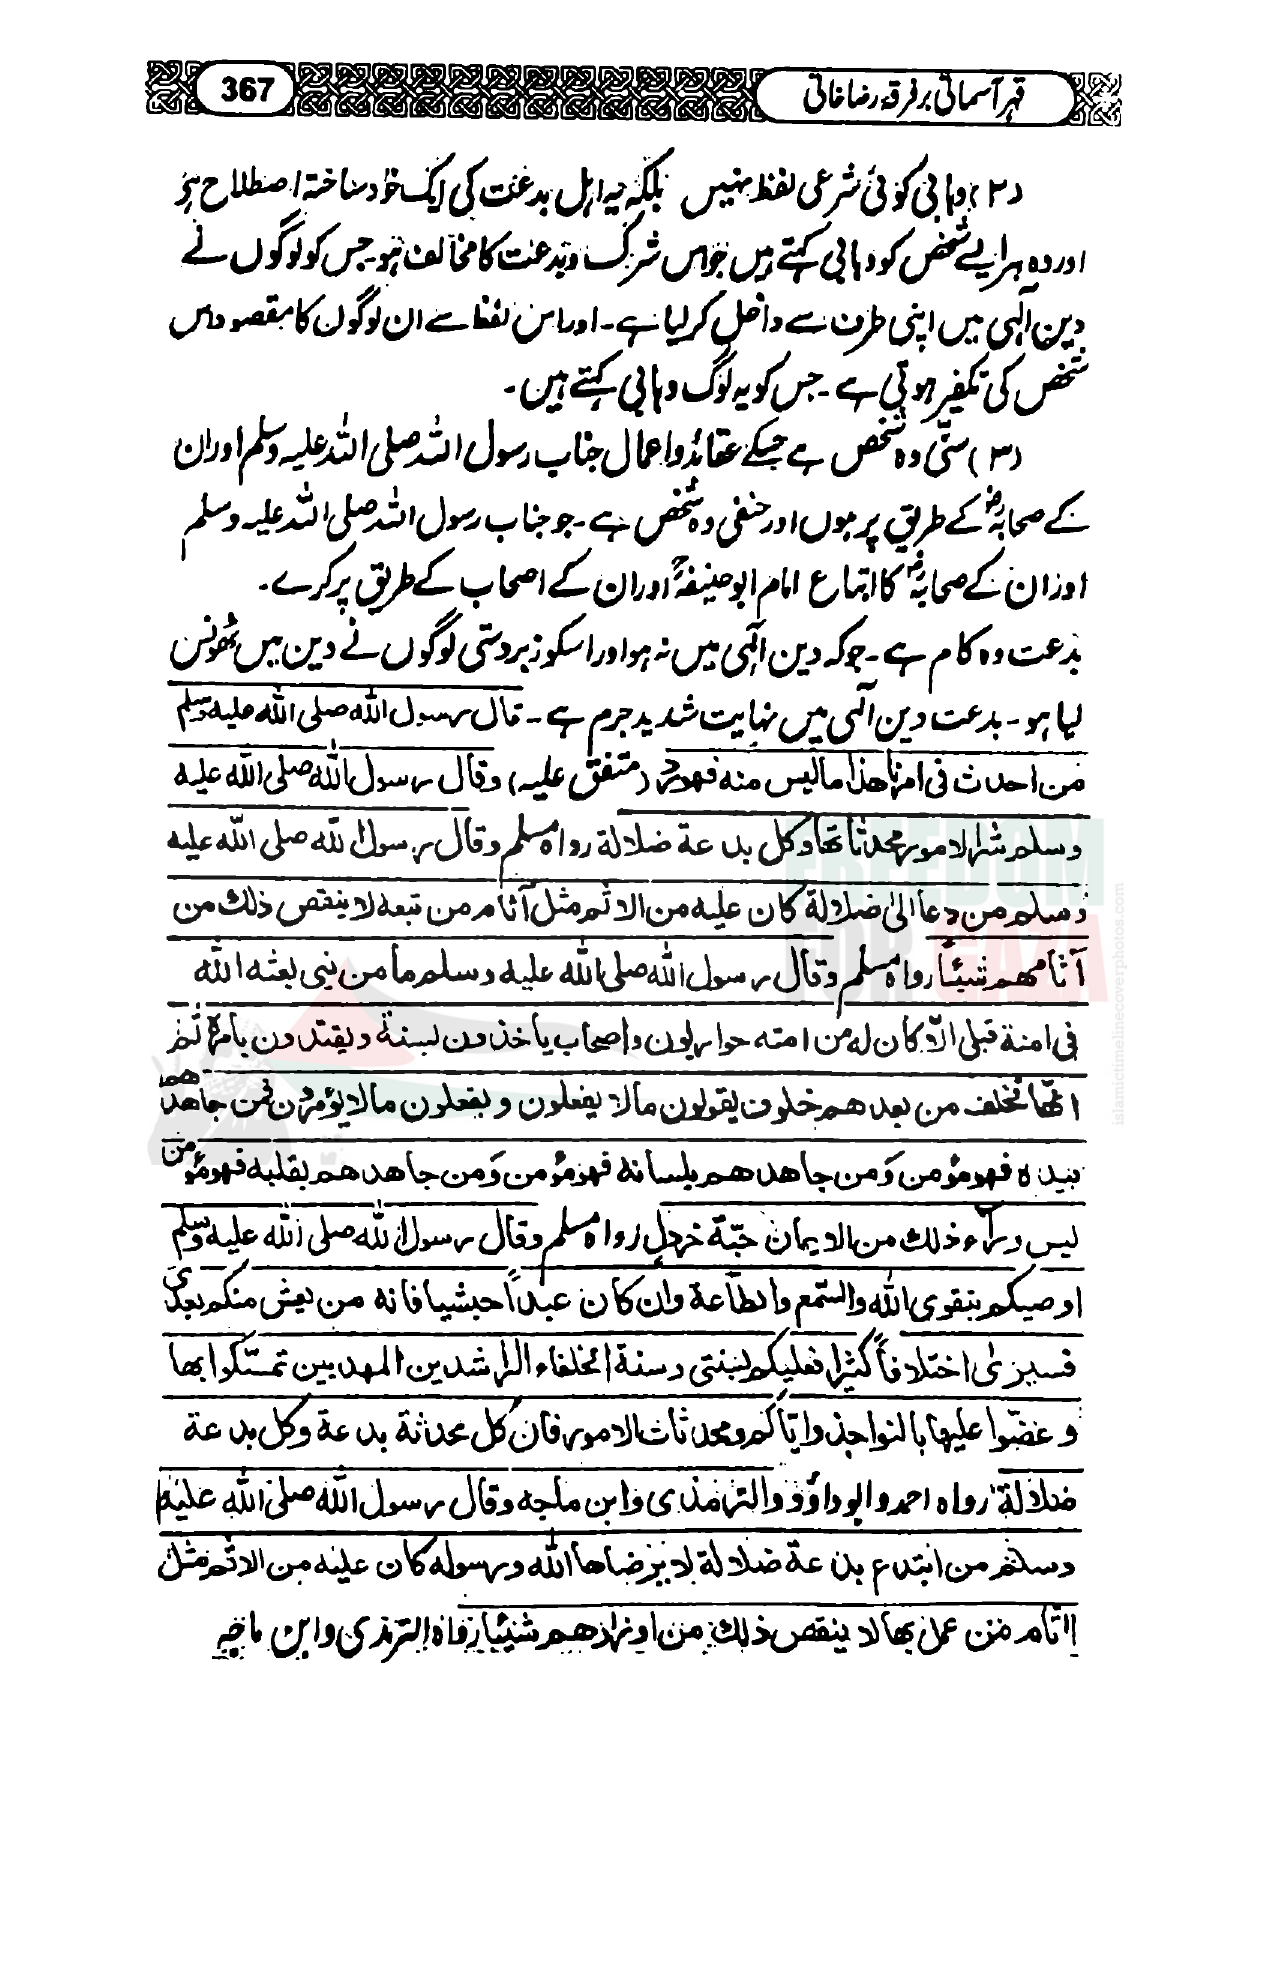 367
قہر آسمانی بر فرقہ رضاخانی
(۲) وہابی کوئی شرعی لفظ نہیں بلکہ یہ اہل بدعت کی ایک خود ساختہ اصطلاح ہے
اور وہ ہر ایسے شخص کو وہابی کہتے ہیں جو اس شرک و بدعت کا مخالف ہو۔ جس کو لوگوں نے
دین الٰہی میں اپنی طرف سے داخل کر لیا ہے۔ اور اس لفظ سے ان لوگوں کا مقصود اس
شخص کی تکفیر ہوتی ہے۔ جس کو یہ لوگ وہابی کہتے ہین۔
(۳) سنّی وہ شخص ہے جسکے عقائد و اعمال جناب رسول اللہ صلی اللہ علیہ وسلم اور ان
کے صحابہؓ کے طریق پر ہوں اور حنفی وہ شخص ہے۔ جو جناب رسول اللہ صلی اللہ علیہ وسلم
اور ان کے صحابہؓ کا اتباع امام ابو حنیفہؒ اور ان کے اصحاب کے طریق پر کرے۔
بدعت وہ کام ہے۔ جو کہ دین الٰہی میں نہ ہو اور اسکو زبردستی لوگوں نے دین میں ٹھونس
لیا ہو۔ بدعت دین الٰہی میں نہایت شدید جرم ہے۔ قال رسول الله صلى الله عليه وسلم
من احدث فى امرنا هذا ما ليس منه فهو رد (متفق عليه) وقال رسول الله صلى الله عليه
وسلم شر الامور محدثاتها وكل بدعة ضلالة رواه مسلم وقال رسول الله صلى الله عليه
وسلم من دعا الىٰ ضلالة كان عليه من الاثم مثل آثام من تبعه لا ينقص ذلك من
آثامهم شيئاً رواه مسلم وقال رسول الله صلى الله عليه وسلم ما من نبى بعثه الله
فى امتة قبلى الّا كان له من امته حواريون واصحاب ياخذون بسنتة ويقتدون بامره ثم
انها تخلف من بعدهم خلوف يقولون مالا يفعلون ويفعلون مالا يؤمرون فمن جاهدهم
بيده فهو مؤمن وَمن جاهدهم بلسانه فهو مؤمن وَمن جاهدهم بقلبه فهو مؤمن
ليس ورآء ذلك من الايمان حبّة خردلٍ رواه مسلم وقال رسول الله صلى الله عليه وسلم
اوصيكم بتقوى الله والسّمع والطّاعة وان كان عبداً حبشيا فانه من يعش منكم بعدى
فسيرىٰ اختلافاً كثيرا فعليكم بسنتى وسنة الخلفاء الراشدين المهديين تمسّكوا بها
وعضّوا عليها بالنواجذ وايّاكم ومحدثات الامور فان كل محدثة بدعة وكل بدعة
ضلالة رواه احمد والوداؤد والترمذى وابن ماجه وقال رسول الله صلى الله عليه
وسلم من ابتدع بدعة ضلالة لا يرضاها الله ورسوله كان عليه من الاثم مثل
اٰثام من عمل بها لا ينقص ذلك من اوزارهم شيئا رواه الترمذى وابن ماجه
FREEDOM
FOR GAZA
islamictimelinecoverphotos.com